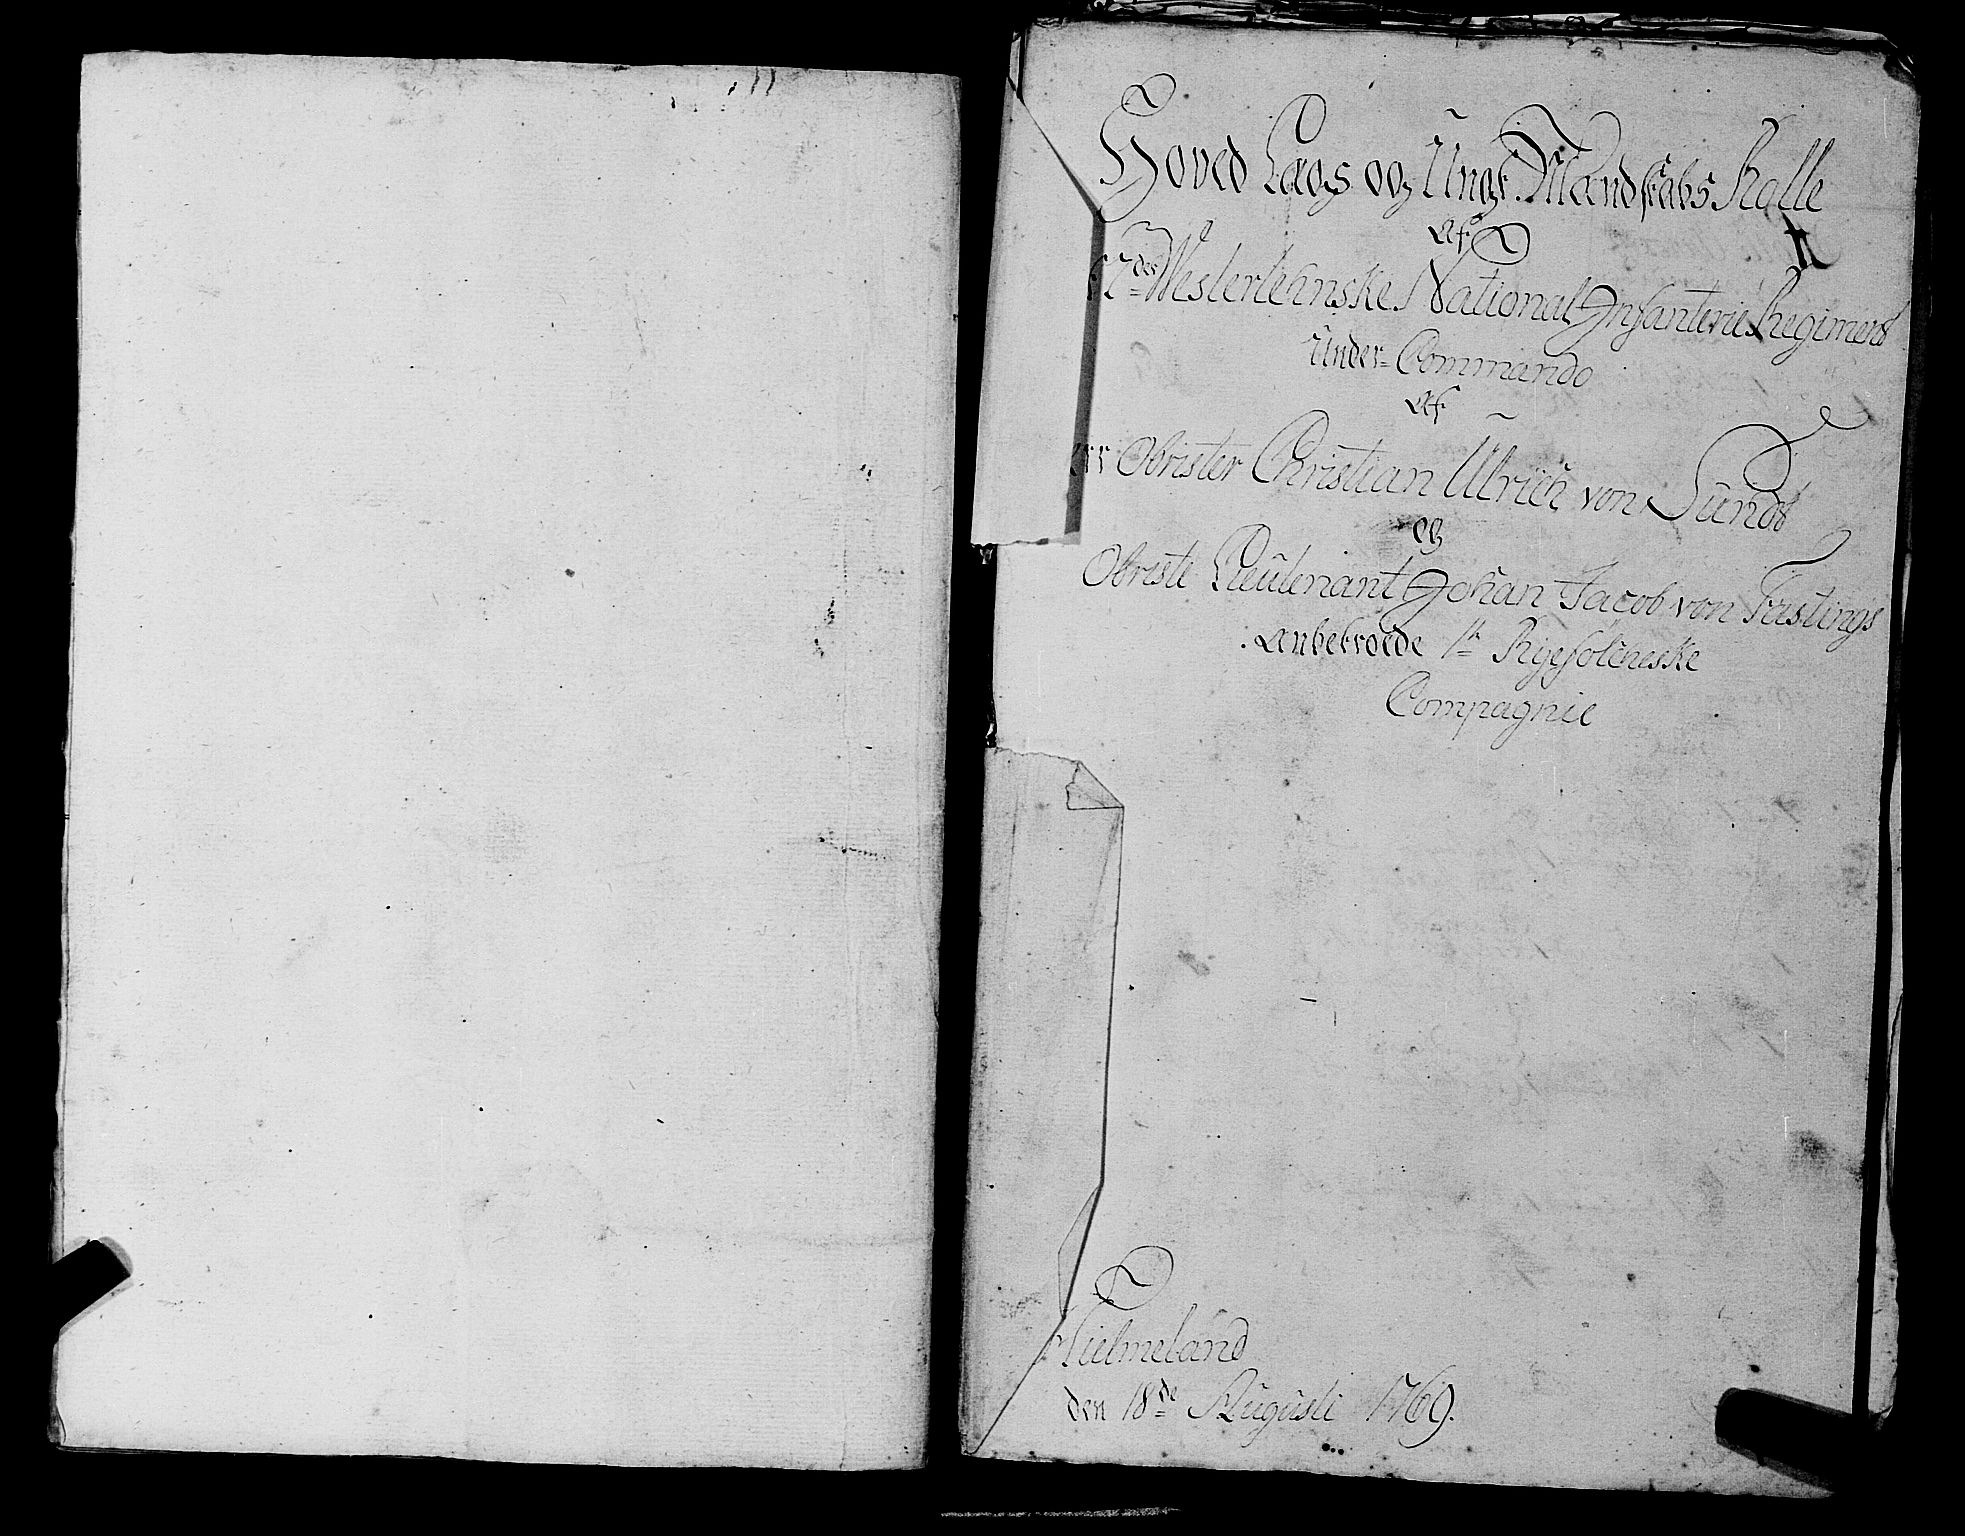 Hoved Laugs og Ungt Mandskabs Rolle
Af
2des Westerlehnske National Infanterie Regiment
Under Commando
Af
Obrister Christian Ulrich von Sundt
og
Obriste Lieutenant Johan Jacob von Fastings
Anbetroede 1te Ryefolcheske
Compagnie
Hielmeland
den 18de Augusti 1769.